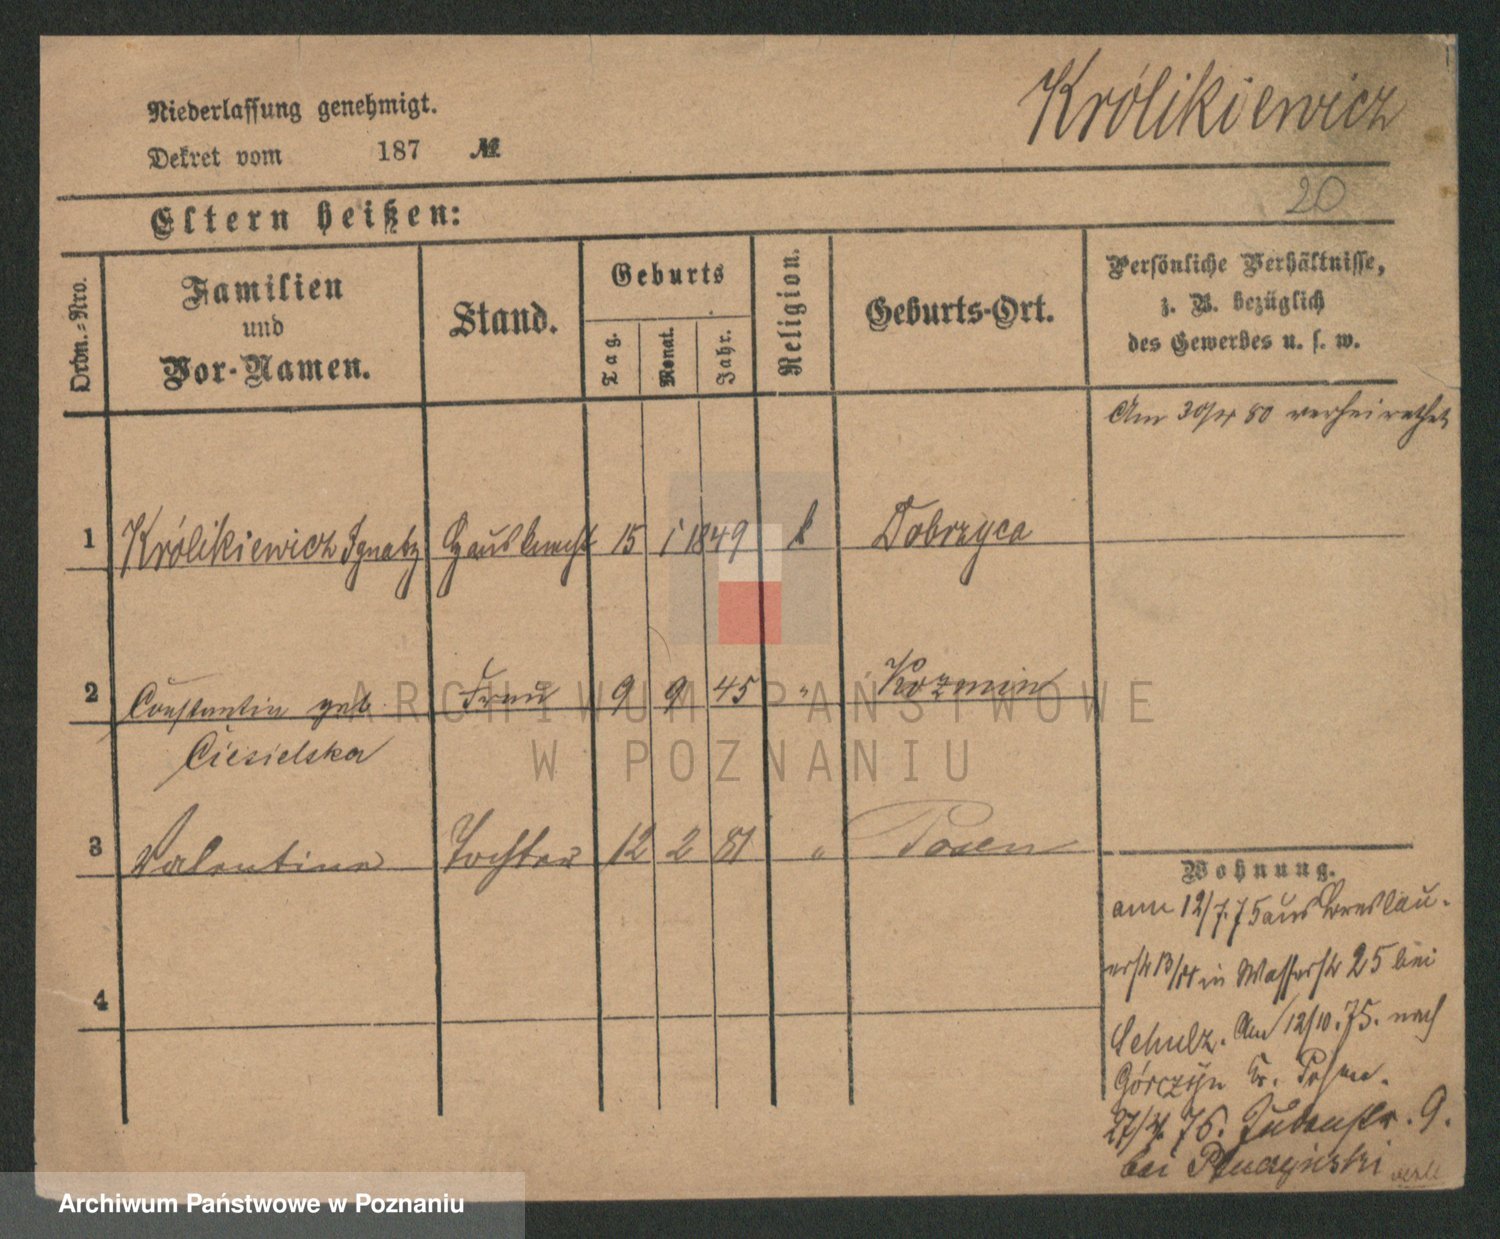 Królikiewicz
Niederlassung genehmigt.
Dekret vom 187 №
20
Eltern heißen:
Ordn.=Nro.
Familien
und
Vor-Namen.
Stand.
Geburts
Tag.
Monat.
Jahr.
Religion.
Geburts-Ort.
Persönliche Verhältnisse,
z. B. bezüglich
des Gewerbes u. s. w.
Am 30/ 80 verheirathet
1 Królikiewicz Ignatz Hausknecht 15 1 1849 k Dobrzyca
2 Constantin geb Frau 9 9 45 " Kozmin
Ciesielska
3 Valentine Tochter 12 2 81 " Posen
4
Wohnung.
12/7.75 aus Breslau.
in Wasserstr 25 bei
Schulz. Am 12/10.75. nach
Górczyn Kr. Posen.
27/4. 76. Judenstr. 9.
bei
ARCHIWUM PAŃSTWOWE
W POZNANIU
Archiwum Państwowe w Poznaniu